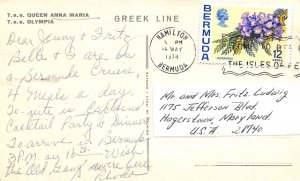 T.s.s. QUEEN ANNA MARIA
T.s.s. OLYMPIA
GREEK LINE
Dear Jenny & Fritz
Belle & I are on
a Bermuda Cruise,
4 meals a day.
To-nite is Captains
Cocktail Party & Dinner
To arrive in Bermuda
3PM on 13th - Wish
the Old Gang were here
Rhoda
HAMILTON
PM
14 MAY
1974
BERMUDA
BERMUDA
JACARANDA
12
THE ISLES OF
Mr and Mrs. Fritz Ludwig
1175 Jefferson Blvd.
Hagerstown, Maryland.
U.S.A 21740